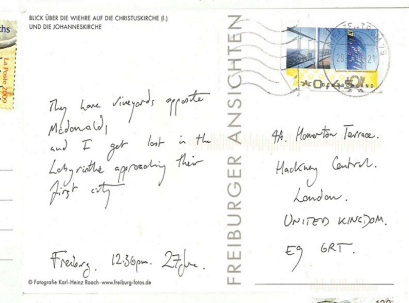 BLICK ÜBER DIE WIEHRE AUF DIE CHRISTUSKIRCHE (l.)
UND DIE JOHANNESKIRCHE
They have vineyards opposite
McDonalds
and I get lost in the
Labyrinthe approaching their
first city
Freiburg. 12:36pm. 27 June.
© Fotografie Karl-Heinz Raach www.freiburg-fotos.de
FREIBURGER ANSICHTEN
4A. Homerton Terrace.
Hackney Central.
London.
UNITED KINGDOM.
E9 6RT.